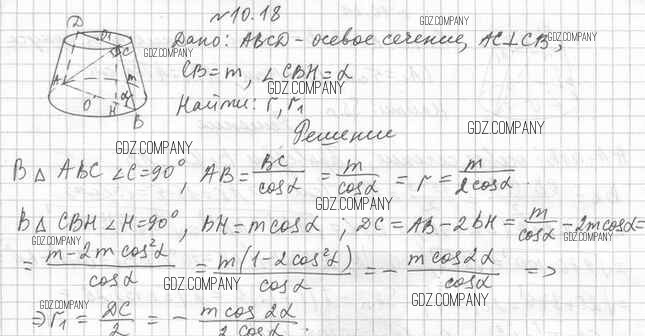 №10.18
Дано: ABCD - осевое сечение, AC⊥CB,
CB=m, ∠CBH=α
Найти: r, r₁
Решение
В △ ABC ∠C=90°, AB = BC/cosα = m/cosα => r = m/2cosα.
В △ CBH ∠H=90°, BH = m cosα ; DC = AB - 2BH = m/cosα - 2m cosα =
= m-2m cos²α/cosα = m(1-2cos²α)/cosα = - m cos2α/cosα =>
=> r₁ = DC/2 = - m cos 2α/2 cosα.
D O₁ C
A m
O H α B
GDZ.COMPANY
GDZ.COMPANY
GDZ.COMPANY
GDZ.COMPANY
GDZ.COMPANY
GDZ.COMPANY
GDZ.COMPANY
GDZ.COMPANY
GDZ.COMPANY
GDZ.COMPANY
GDZ.COMPANY
GDZ.COMPANY
GDZ.COMPANY